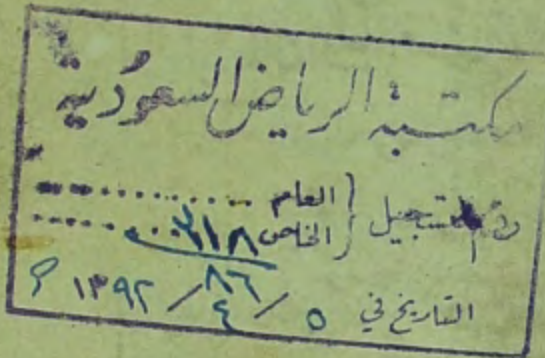 مكتبة الرياض السعودية
رقم التسجيل { العام
الخاص ٣١٨
٨٦
التاريخ في ٥ / ٤ / ١٣٩٢